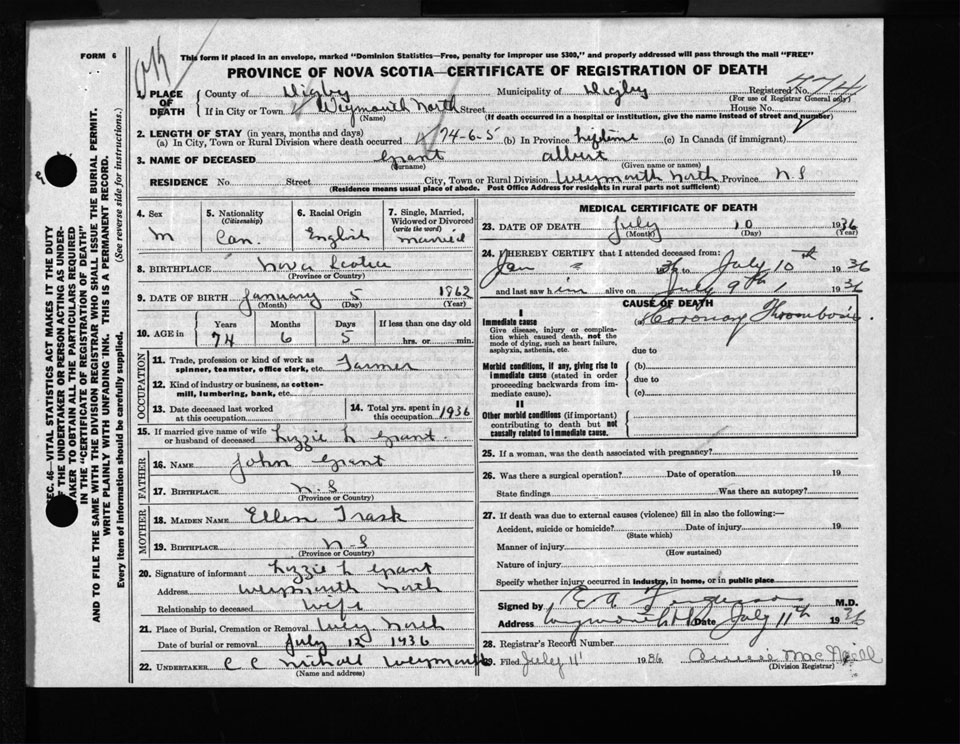 FORM 6
This form if placed in an envelope, marked "Dominion Statistics—Free, penalty for improper use $300," and properly addressed will pass through the mail "FREE"
PROVINCE OF NOVA SCOTIA—CERTIFICATE OF REGISTRATION OF DEATH
1. PLACE OF DEATH
County of Digby Municipality of Digby Registered No.
(For use of Registrar General only)
If in City or Town Weymouth North Street House No.
(Name) (If death occurred in a hospital or institution, give the name instead of street and number)
2. LENGTH OF STAY (in years, months and days)
(a) In City, Town or Rural Division where death occurred 74-6-5 (b) In Province lifetime (c) In Canada (if immigrant)
3. NAME OF DECEASED Grant albert
(Surname) (Given name or names)
RESIDENCE No. Street City, Town or Rural Division Weymouth North Province N S
(Residence means usual place of abode. Post Office Address for residents in rural parts not sufficient)
4. Sex
M
5. Nationality
(Citizenship)
Can.
6. Racial Origin
English
7. Single, Married, Widowed or Divorced
(write the word)
married
8. BIRTHPLACE Nova Scotia
(Province or Country)
9. DATE OF BIRTH January 5 1862
(Month) (Day) (Year)
10. AGE in Years Months Days If less than one day old
74 6 5 hrs. or min.
OCCUPATION
11. Trade, profession or kind of work as spinner, teamster, office clerk, etc. Farmer
12. Kind of industry or business, as cotton-mill, lumbering, bank, etc.
13. Date deceased last worked at this occupation
14. Total yrs. spent in this occupation 1936
15. If married give name of wife or husband of deceased Lizzie L Grant.
FATHER
16. NAME John Grant
17. BIRTHPLACE N. S
(Province or Country)
MOTHER
18. MAIDEN NAME Ellen Trask
19. BIRTHPLACE N S
(Province or Country)
20. Signature of informant Lizzie L Grant
Address Weymouth North
Relationship to deceased Wife
21. Place of Burial, Cremation or Removal Wey. North
Date of burial or removal July 12 1936
22. UNDERTAKER C C Weymouth
(Name and address)
MEDICAL CERTIFICATE OF DEATH
23. DATE OF DEATH July 10 1936
(Month) (Day) (Year)
24. I HEREBY CERTIFY that I attended deceased from:
Jan 1936 to July 10th 1936
and last saw him alive on July 9th, 1936
CAUSE OF DEATH
I
Immediate cause
Give disease, injury or complication which caused death, not the mode of dying, such as heart failure, asphyxia, asthenia, etc.
(a) Coronary Thrombosis.
due to
Morbid conditions, if any, giving rise to immediate cause (stated in order proceeding backwards from immediate cause).
(b)
due to
(c)
II
Other morbid conditions (if important) contributing to death but not causally related to immediate cause.
25. If a woman, was the death associated with pregnancy?
26. Was there a surgical operation? Date of operation 19
State findings Was there an autopsy?
27. If death was due to external causes (violence) fill in also the following:—
Accident, suicide or homicide? Date of injury 19
(State which)
Manner of injury
(How sustained)
Nature of injury
Specify whether injury occurred in industry, in home, or in public place
Signed by E A Ferguson M.D.
Address Weymouth Date July 11th 1936
28. Registrar's Record Number
29. Filed July 11 1936 MacNeill
(Division Registrar)
SEC. 46—VITAL STATISTICS ACT MAKES IT THE DUTY
OF THE UNDERTAKER OR PERSON ACTING AS UNDER-
TAKER TO OBTAIN ALL THE PARTICULARS REQUIRED
IN THE "CERTIFICATE OF REGISTRATION OF DEATH"
AND TO FILE THE SAME WITH THE DIVISION REGISTRAR WHO SHALL ISSUE THE BURIAL PERMIT.
WRITE PLAINLY WITH UNFADING INK. THIS IS A PERMANENT RECORD.
Every item of information should be carefully supplied. (See reverse side for instructions.)